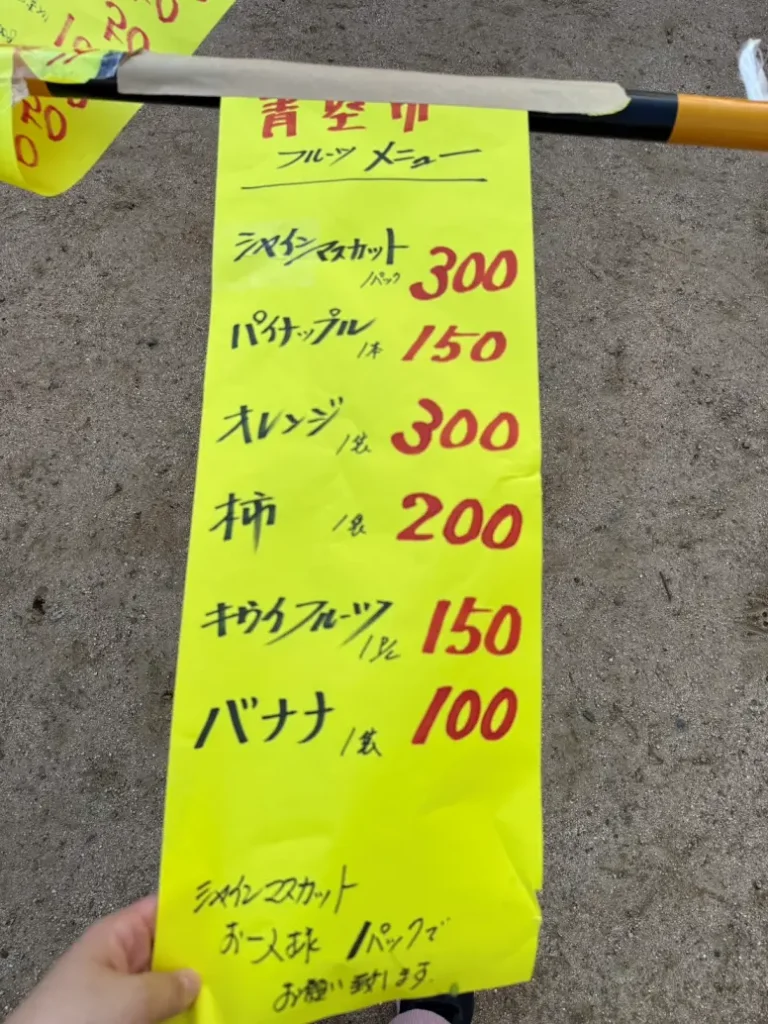 青空市
フルーツ メニュー
シャインマスカット 1パック 300
パイナップル 1本 150
オレンジ 1袋 300
柿 1袋 200
キウイフルーツ 1Pc 150
バナナ 1袋 100
シャインマスカット
お一人様 1パックで
お願い致します